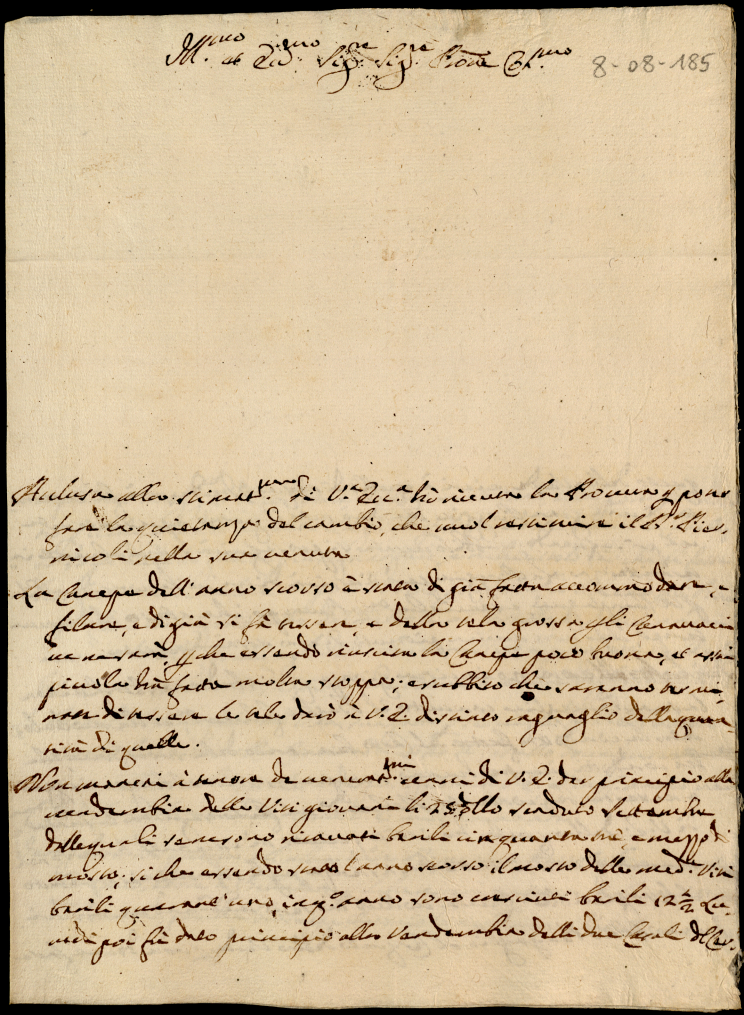 Ill.mo et Ecc.mo Sig.re Sig.re Prone Col.mo
8-08-185
Inclusa alla stimat.ma di V.a Ecc.a hò ricevuta la Procura p poter
fare la quietanza del cambio, che vuol restituire il Sr. Pier-
nicoli nella sua venuta
La Canepa dell'anno scorso è stata di già fatta accommodare, e
filare, e di già si fà tessere, e della tela grossa p li Canavacci
ve ne sarà, p che essendo riuscita la Canepa poco buona, et assai
piccola hà fatto molta stoppa; e subbito che saranno termi-
nate di tessere le tele darò à V.E. distinto ragguaglio della quan-
tità di quelle.
Non mancai à tenore de venerat.mi cenni di V.E. dar principio alla
vendembia delle Viti giovani li 23 dello scaduto Settembre
dalle quali se ne sono ricavati barili cinquanta trè, e mezzo di
mosto; siche essendo stato l'anno scorso il mosto delle med.e Viti
barili quarant'uno, in q.o anno sono cresciuti barili 12 1/2 Lu-
nedì poi fù dato principio alla Vendembia delli due Casali del Cer-